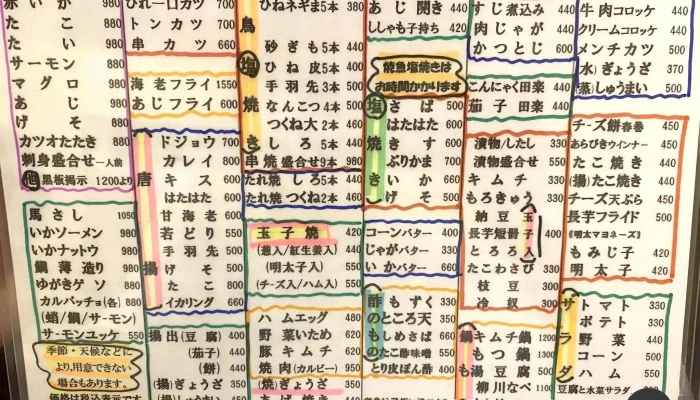 赤いか 980
たこ 880
たい 980
サーモン 880
マグロ 980
あじ 980
げそ 880
カツオたたき 880
刺身盛合せ一人前
他黒板掲示 1200より
馬さし 1050
いかソーメン 980
いかナットウ 980
鯛薄造り 980
ゆがきゲソ 800
カルパッチョ(各) 880
(蛸/鯛/サーモン)
サーモンユッケ 550
季節・天候などに
より,用意できない
場合もあります。
価格は税込表示です
ひれ一口カツ 700
トンカツ 700
串カツ 660
海老フライ 1550
あじフライ 600
唐揚
ドジョウ 700
カレイ 800
キス 600
はたはた 600
甘海老 600
若どり 550
手羽先 500
げそ 500
たこ 800
イカリング 660
揚出(豆腐) 400
(茄子) 440
(餅) 440
(揚)ぎょうざ 350
ひねネギま5本 380
鳥塩焼
砂ぎも5本 440
ひね皮5本 400
手羽先3本 500
なんこつ4本 500
つくね大2本 460
きしろ5本 440
串焼盛合せ9本 980
たれ焼しろ5本 440
たれ焼つくね2本 460
玉子焼 420
(葱入/紅生姜入) 440
(明太子入) 550
(チーズ入/ハム入) 550
ハムエッグ 480
野菜いため 620
豚キムチ 620
焼肉(カルビー) 950
(焼)ぎょうざ 350
あじ開き 400
ししゃも子持ち 420
焼魚塩焼きは
お時間かかります
塩焼き
さば 500
はたはた 600
きす 700
ぶりかま 700
いか 660
げそ 500
コーンバター 400
じゃがバター 330
いかバター 660
酢のもの
もずく 330
ところ天 350
しめさば 660
たこ酢味噌 550
とり皮ぽん酢 400
すじ煮込み 440
肉じゃが 440
かつとじ 600
こんにゃく田楽 440
茄子田楽 440
漬物/したし 330
漬物盛合せ 550
キムチ 330
もろきゅう 330
納豆玉子入
長芋短冊 400
とろろ
たこわさび 330
枝豆 300
冷奴 300
鍋
キムチ鍋 1200
もつ鍋 1300
湯豆腐 500
柳川なべ 1100
牛肉コロッケ 400
クリームコロッケ 400
メンチカツ 500
(水)ぎょうざ 370
(蒸)しゅうまい 500
チーズ餅春巻 450
あらびきウインナー 450
たこ焼き 450
(揚)たこ焼き 450
チーズ天ぷら 450
長芋フライド 500
(明太マヨネーズ)
もみじ子 420
明太子 420
サラダ
トマト 330
ポテト 330
野菜 440
コーン 500
ハム 550
豆腐と水菜サラダ